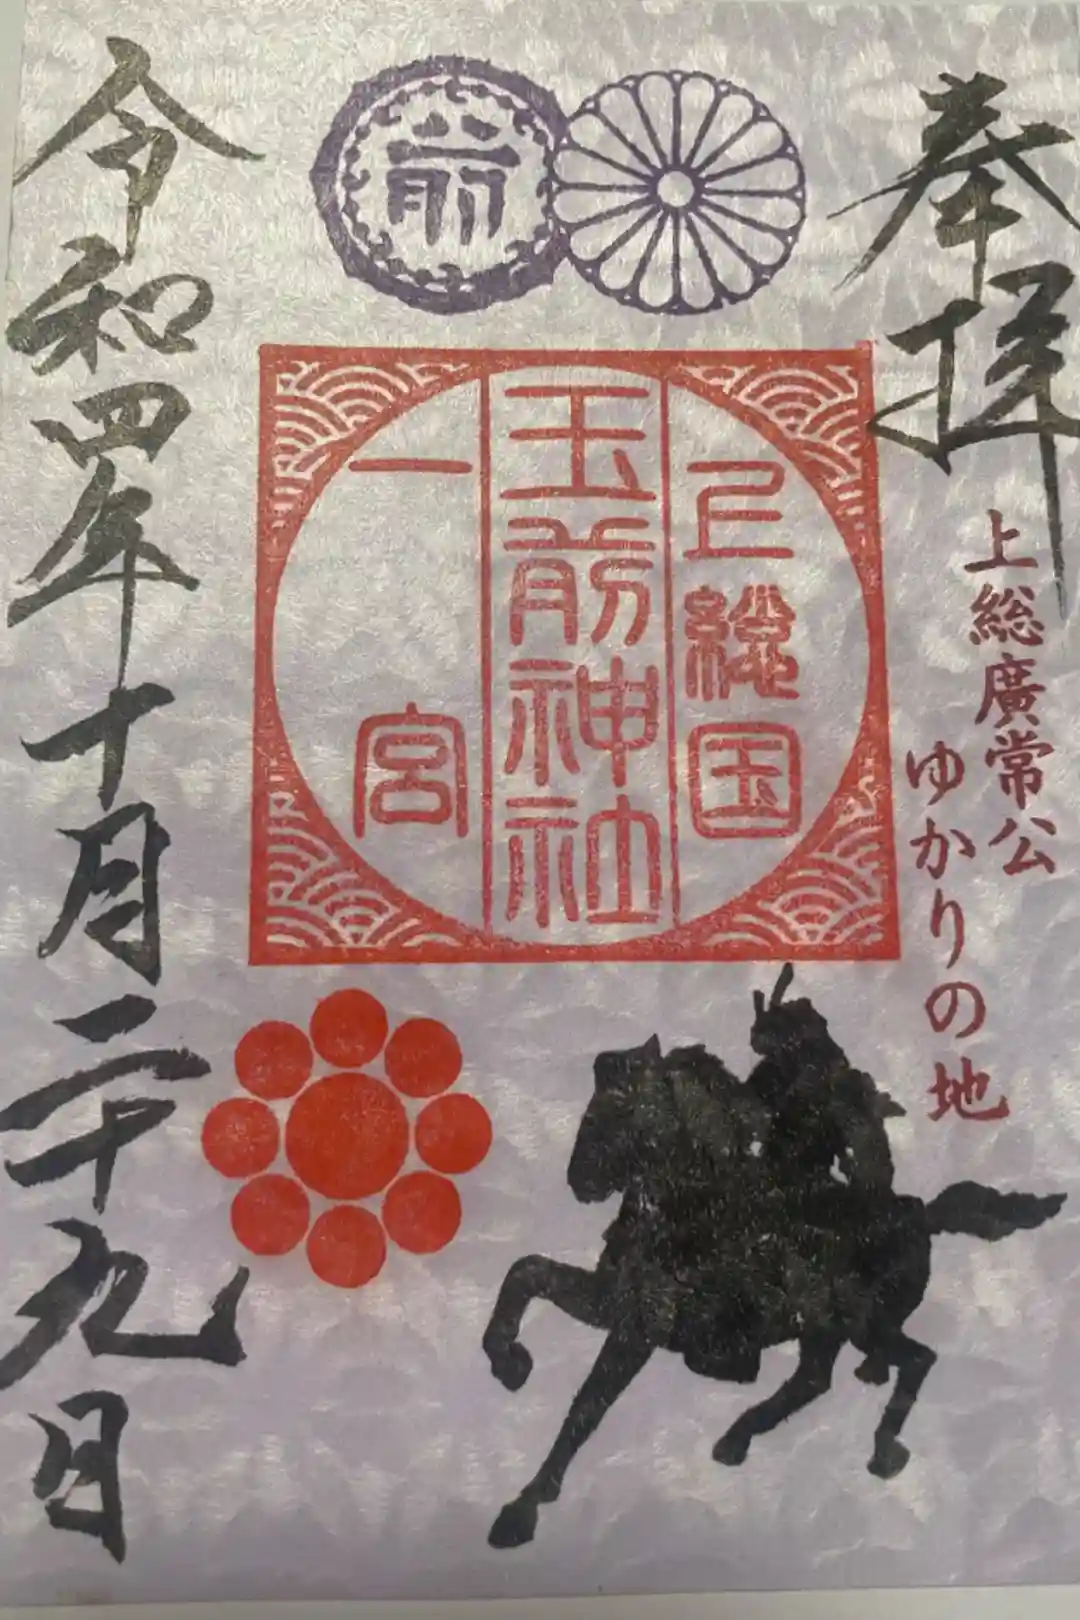 奉拝
上総廣常公
ゆかりの地
前
上総国
玉前神社
一宮
令和四年十月二十九日